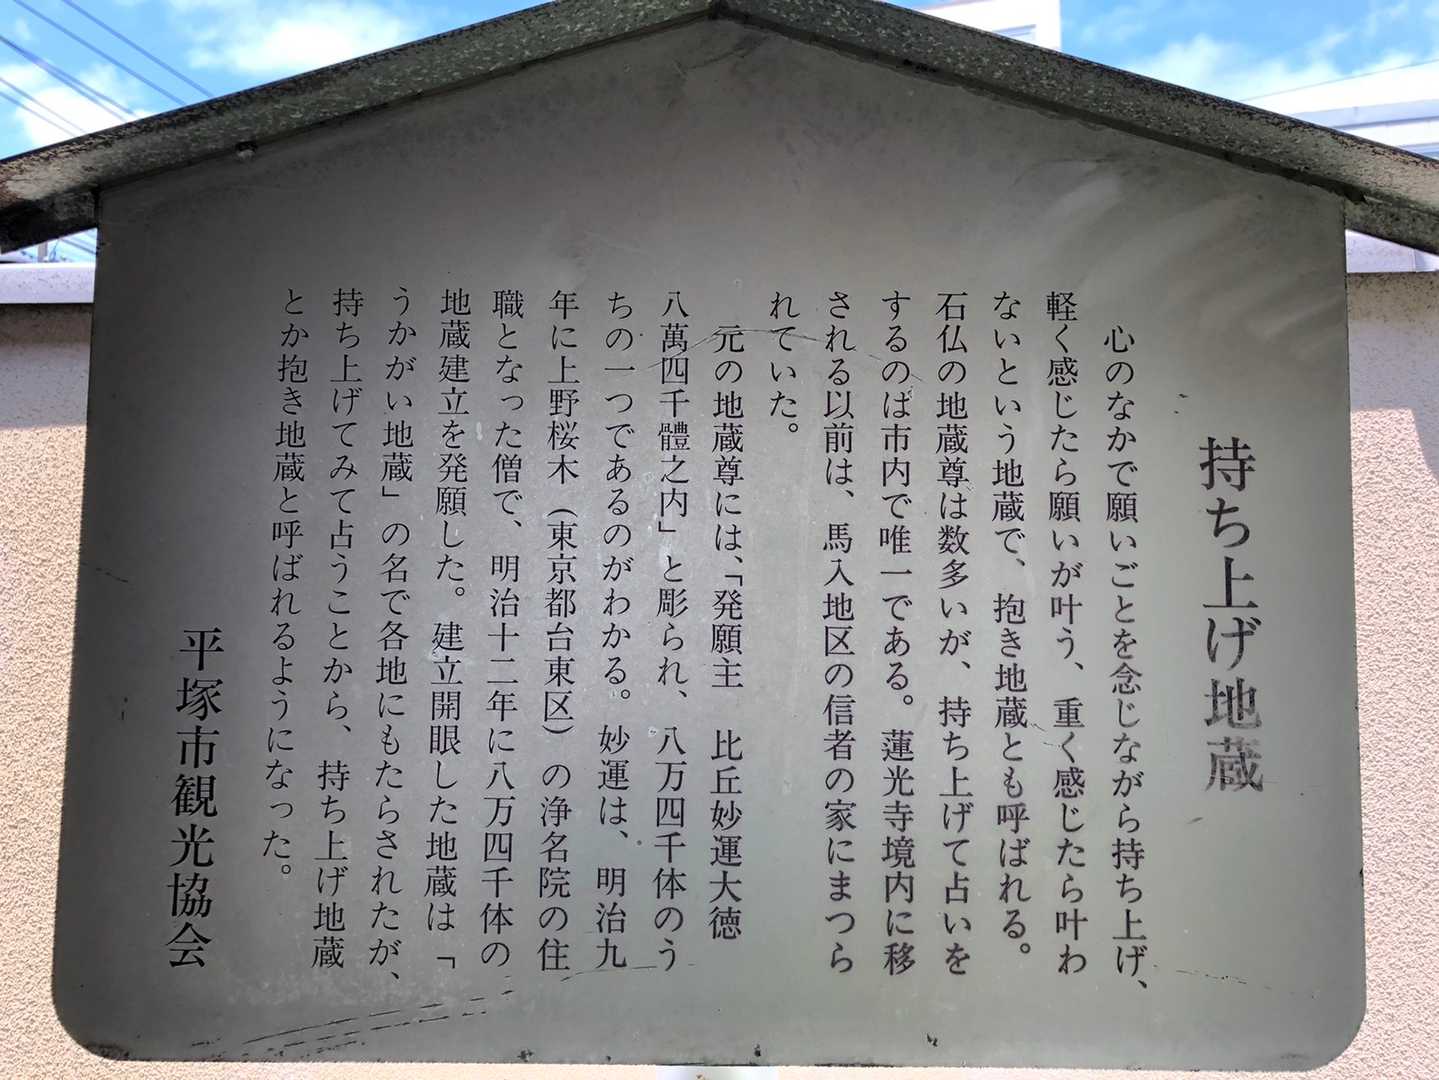 持ち上げ地蔵
心のなかで願いごとを念じながら持ち上げ、
軽く感じたら願いが叶う、重く感じたら叶わ
ないという地蔵で、抱き地蔵とも呼ばれる。
石仏の地蔵尊は数多いが、持ち上げて占いを
するのは市内で唯一である。蓮光寺境内に移
される以前は、馬入地区の信者の家にまつら
れていた。
元の地蔵尊には、「発願主　比丘妙運大徳
八萬四千體之内」と彫られ、八万四千体のう
ちの一つであるのがわかる。妙運は、明治九
年に上野桜木（東京都台東区）の浄名院の住
職となった僧で、明治十二年に八万四千体の
地蔵建立を発願した。建立開眼した地蔵は「
うかがい地蔵」の名で各地にもたらされたが、
持ち上げてみて占うことから、持ち上げ地蔵
とか抱き地蔵と呼ばれるようになった。
平塚市観光協会